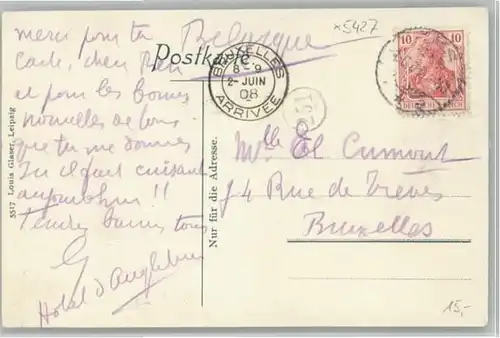 x5427
Belgique
Postkarte
merci pour ta
carte, chère
et pour les bonnes
nouvelles de tous
que tu me donnes
il fait cuisant
aujourd'hui !!
Tendres à tous
G
Hotel d'Angleterre
5517 Louis Glaser, Leipzig
Nur für die Adresse.
BRUXELLES
8-9
2-JUIN
08
ARRIVÉE
251
10 10
DEUTSCHES REICH
Mlle El. Cumont
74 Rue de Trèves
Bruxelles
15,-